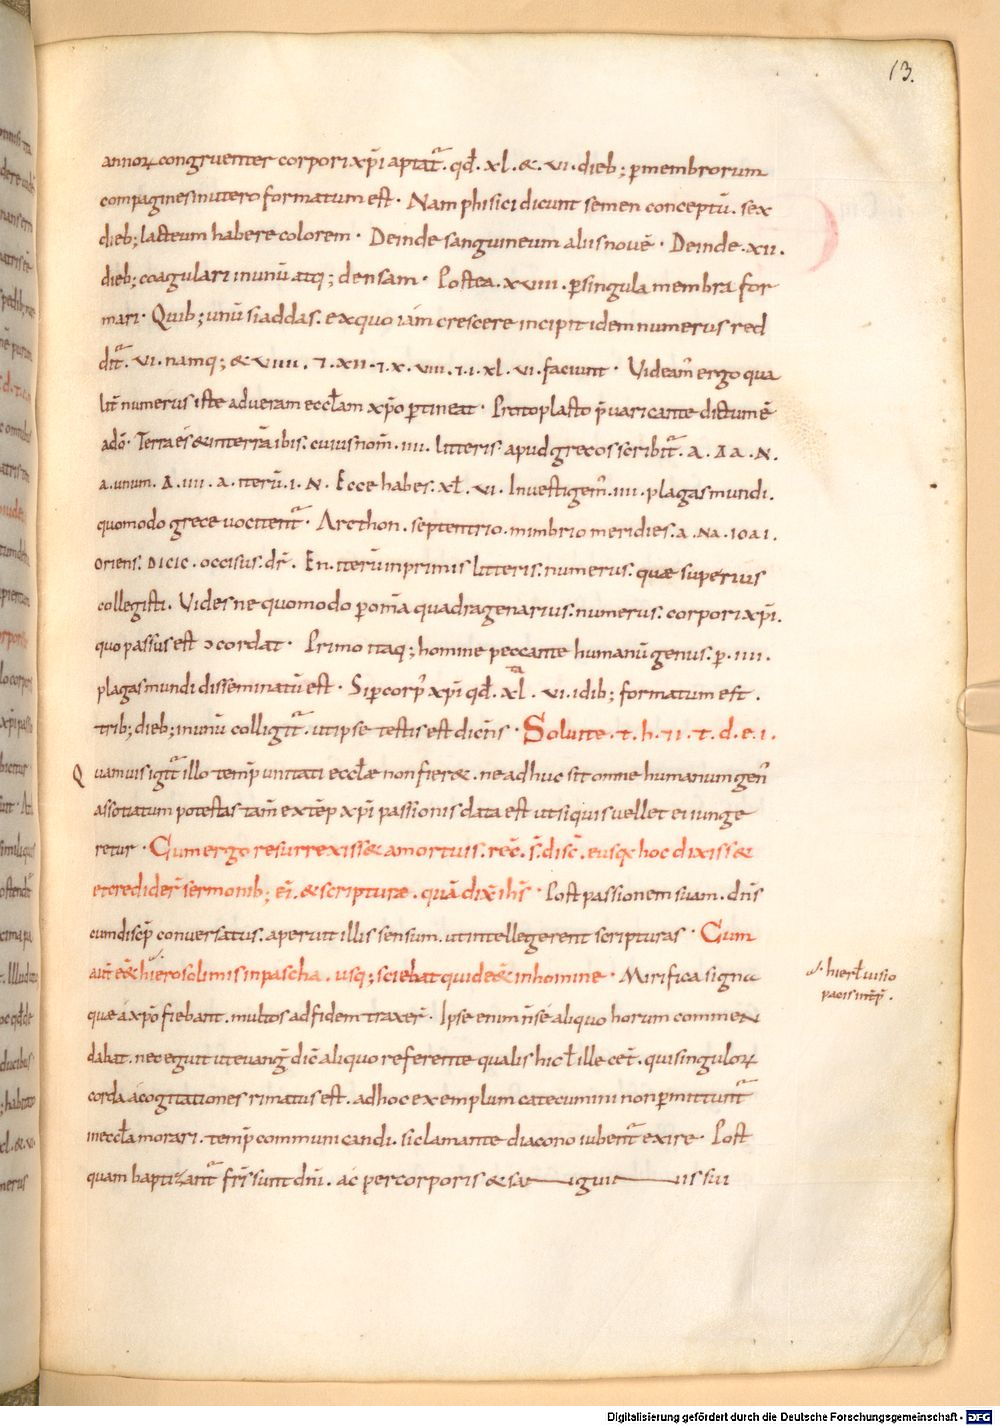 13.
annoꝝ congruenter corpori xp̄i aptat᷑. qđ. xl. &. vi. dieb; p̱membrorum
compagines inutero formatum est. Nam phisici dicunt semen conceptū. sex
dieb; lacteum habere colorem. Deinde sanguineum aliis nouē. Deinde. xii.
dieb; coagulari inunū atq; densam. Postea. xviii. p̱singula membra for
mari. Quib; unū si addas. exquo iám crescere incipit idem numerus red
dit᷑. vi. namq; & viiii. ⁊. xii. ⁊. x. viii. ⁊. i. xl. vi. faciunt. Videam᷒ ergo qua
lit̄ numerus iste adueram eccłam xp̄o p̱tineat. Protoplasto p̄uaricante dictum ē
adō. Terra és & interrā ibis. cuius nom̄. iiii. litteris. apud grecos scribit᷑. a. Δ a. N.
a. unum. Δ. iiii. a. iterū. i. N. Ecce habes. xł. vi. Inuestigem᷒. iiii. plagas mundi.
quomodo grece uocitent᷑. Arcthon. septentrio. mimbrio meridies. a. Na. 10 a 1.
oriens. DICIC. occisus. dr̄. En. iterū inprimis litteris. numerus. quæ superius
collegisti. Vides ne quomodo p̱ om̄ia quadragenarius. numerus. corpori xp̄i.
quo passus est ɔcordat. Primo itaq; homine peccante humanū genus. p̱. iiii.
plagas mundi disseminatū est. Sip̱ corp᷒ xp̄i qđ. xl. vi. idib; formatum est.
trib; dieb; inunū colligit᷑. utipse testis est dicēs. Soluite. t. h. ⁊ i. t. d. e. i.
Quamuis igit᷑ illo temp̄ unitati eccłæ non fier&. ne adhuc sit omne humanum gen᷒
assotiatum potestas tam̄ ex tēp xp̄i passionis data est ut siquis uellet ei iunge
retur. Cum ergo resurrexiss& amortuis. rec̄. s̄. disc̄. eius q̇ hoc dixiss&
et credider̄ sermonib; ei. & scripturæ. quā dix̄ ihs̄. Post passionem suam. dn̄s
cum discip̄ conuersatus. aperuit illis sensum. ut intellegerent scripturas. Cum
aut̄ e&̄ hierosolimis inpascha. usq; sciebat quid e&̄ in homine. Mirifica signa
hierł uisio
pacis int̄p̄.
quæ á xp̄o fiebant. multos ad fidem traxer̄. Ipse enim n̄ sé aliquo horum commen
dabat. nec eguit ut euanḡ dic̄ aliquo referente qualis hic ł ille cet̄. qui singuloꝝ
corda ácogitationes rimatus est. adhoc exemplum catecumini non p̱mittunt᷑
ineccła morari. temp̄ communicandi. sic lamante diacono iubent᷑ exire. Post
quam baptizant᷑ fr̄i sunt dn̄i. ác per corporis & sa guin is sui
Digitalisierung gefördert durch die Deutsche Forschungsgemeinschaft - DFG